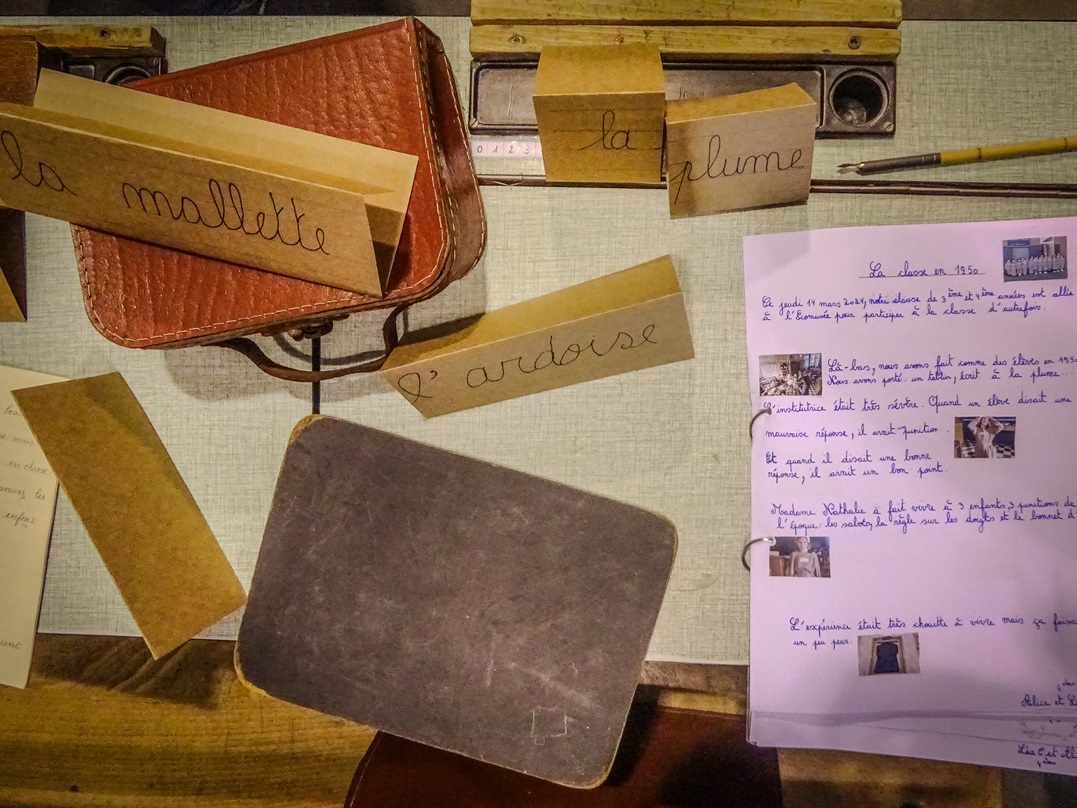 la mallette
la
plume
l'ardoise
0 1 2 3
La classe en 1950
Ce jeudi 14 mars 2024, notre classe de 3ème et 4ème années est allée
à l'Ecomusée pour participer à la classe d'autrefois.
Là-bas, nous avons fait comme des élèves en 195
Nous avons porté un tablier, écrit à la plume...
L'institutrice était très sévère. Quand un élève disait une
mauvaise réponse, il avait punition.
Et quand il disait une bonne
réponse, il avait un bon point.
Madame Nathalie a fait vivre à 3 enfants, 3 punitions de
l'époque: les sabots, la règle sur les doigts et le bonnet d'
L'expérience était très chouette à vivre mais ça faisa
un peu peur.
en classe